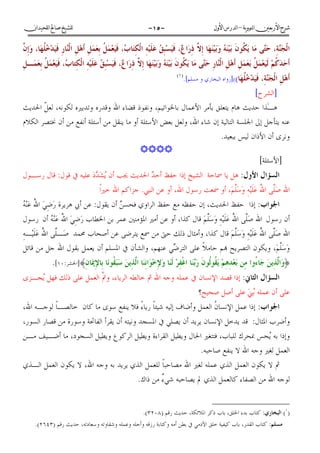 شرح الأربعين النووية - الدرس الأول
-١٥-
للشيخ صالح الفوزان
الْجَنَّةِ، حَتَّى مَا يَكُونُ بَيْنَهُ وَبَيْنَهَا إِلَّا ذِرَاعٌ، فَيَسْبِقُ عَلَيْهِ الْكِتَابُ، فَيَعْمَلُ بِعَمَلِ أَهْلِ النَّارِ فَيَدْخُلُهَا، وَإِنَّ
أَحَدَكُمْ لَيَعْمَلُ بِعَمَلِ أَهْلِ النَّارِ، حَتَّى مَا يَكُونُ بَيْنَهُ وَبَيْنَهَا إِلَّا ذِرَاعٌ، فَيَسْبِقُ عَلَيْهِ الْكِتَابُ، فَيَعْمَلُ بِعَمَلِ
أَهْلِ الْجَنَّةِ، فَيَدْخُلُهَا» [رواه البخاري و مسلم] (١).
[الشرح]
هذا حديث هام يتعلق بأمر الأعمال بالخواتيم، ونفوذ قضاء الله وقدره وتدبيره لكونه، لعل الحديث
عنه يتأجل إلى الجلسة التالية إن شاء الله، ولعل بعض الأسئلة أو ما ينقل من أسئلة أنفع من أن نختصر الكلام
ونرى أن الأذان ليس ببعيد.
[الأسئلة]
السؤال الأول: هل يا سماحة الشيخ إذا حفظ أحدٌ الحديث يجب أن يُشدَّد عليه في قول: قال رسول
الله صَلَّى اللهُ عَلَيْهِ وَسَلَّمَ، أو سمعت رسول الله، أو عن النبي. جزاكم الله خيراً
الجواب: إذا حفظ الحديث، إن حفظه مع حفظ الراوي فحسنٌ أن يقول: عن أبي هريرة رَضِيَ اللهُ عَنْهُ
أن رسول الله صَلَّى اللهُ عَلَيْهِ وَسَلَّمَ قال كذا، أو عن أمير المؤمنين عمر بن الخطاب رَضِيَ اللهُ عَنْهُ أن رسول
الله صَلَّى اللهُ عَلَيْهِ وَسَلَّمَ قال كذا، وأمثال ذلك حتى من سمع يترضى عن أصحاب محمد صَلَّى اللهُ عَلَيْهِ
وَسَلَّمَ، ويكون التصريح هم حاملاً على الترضّي عنهم، والشأن في المسلم أن يعمل بقول الله جل من قائل
﴿وَالَّذِينَ جَاءُوا مِنْ بَعْدِهِمْ يَقُولُونَ رَبَّنَا اغْفِرْ لَنَا وَلِإِخْوَانِنَا الَّذِينَ سَبَقُونَا بِالْإِيمَانِ﴾ [الحشر: ١٠].
السؤال الثاني: إذا قصد الإنسان في عمله وجه الله ثم خالطه الرياء، وتمَّ العمل على ذلك فهل يُجزى
على أن عمله بُنِيَ على أصل صحيح؟
الجواب: إذا عمل الإنسانُ العمل وأضاف إليه شيئاً رياءً فلا ينفع سوى ما كان خالصاً لوجه الله،
وأضرب المثال: قد يدخل الإنسان يريد أن يصلي في المسجد ونيته أن يقرأ الفاتحة وسورة من قصار السور،
وإذا به يُحس بتحرك للباب، فتتغير الحال ويطيل القراءة ويطيل الركوع ويطيل السجود، ما أضيف من
العمل لغير وجه الله لا ينفع صاحبه.
ثم لا يكون العمل الذي عمله لغير الله مصاحباً للعمل الذي يريد به وجه الله، لا يكون العمل الذي
لوجه الله من الصفاء كالعمل الذي لم يصاحبه شيءٌ من ذاك.
(١) البخاري: كتاب بدء الخلق، باب ذكر الملائكة، حديث رقم (٣٢٠٨).
مسلم: كتاب القدر، باب كيفية خلق الآدمي في بطن أمه وكتابة رزقه وأجله وعمله وشقاوته وسعادته، حديث رقم (٢٦٤٣).